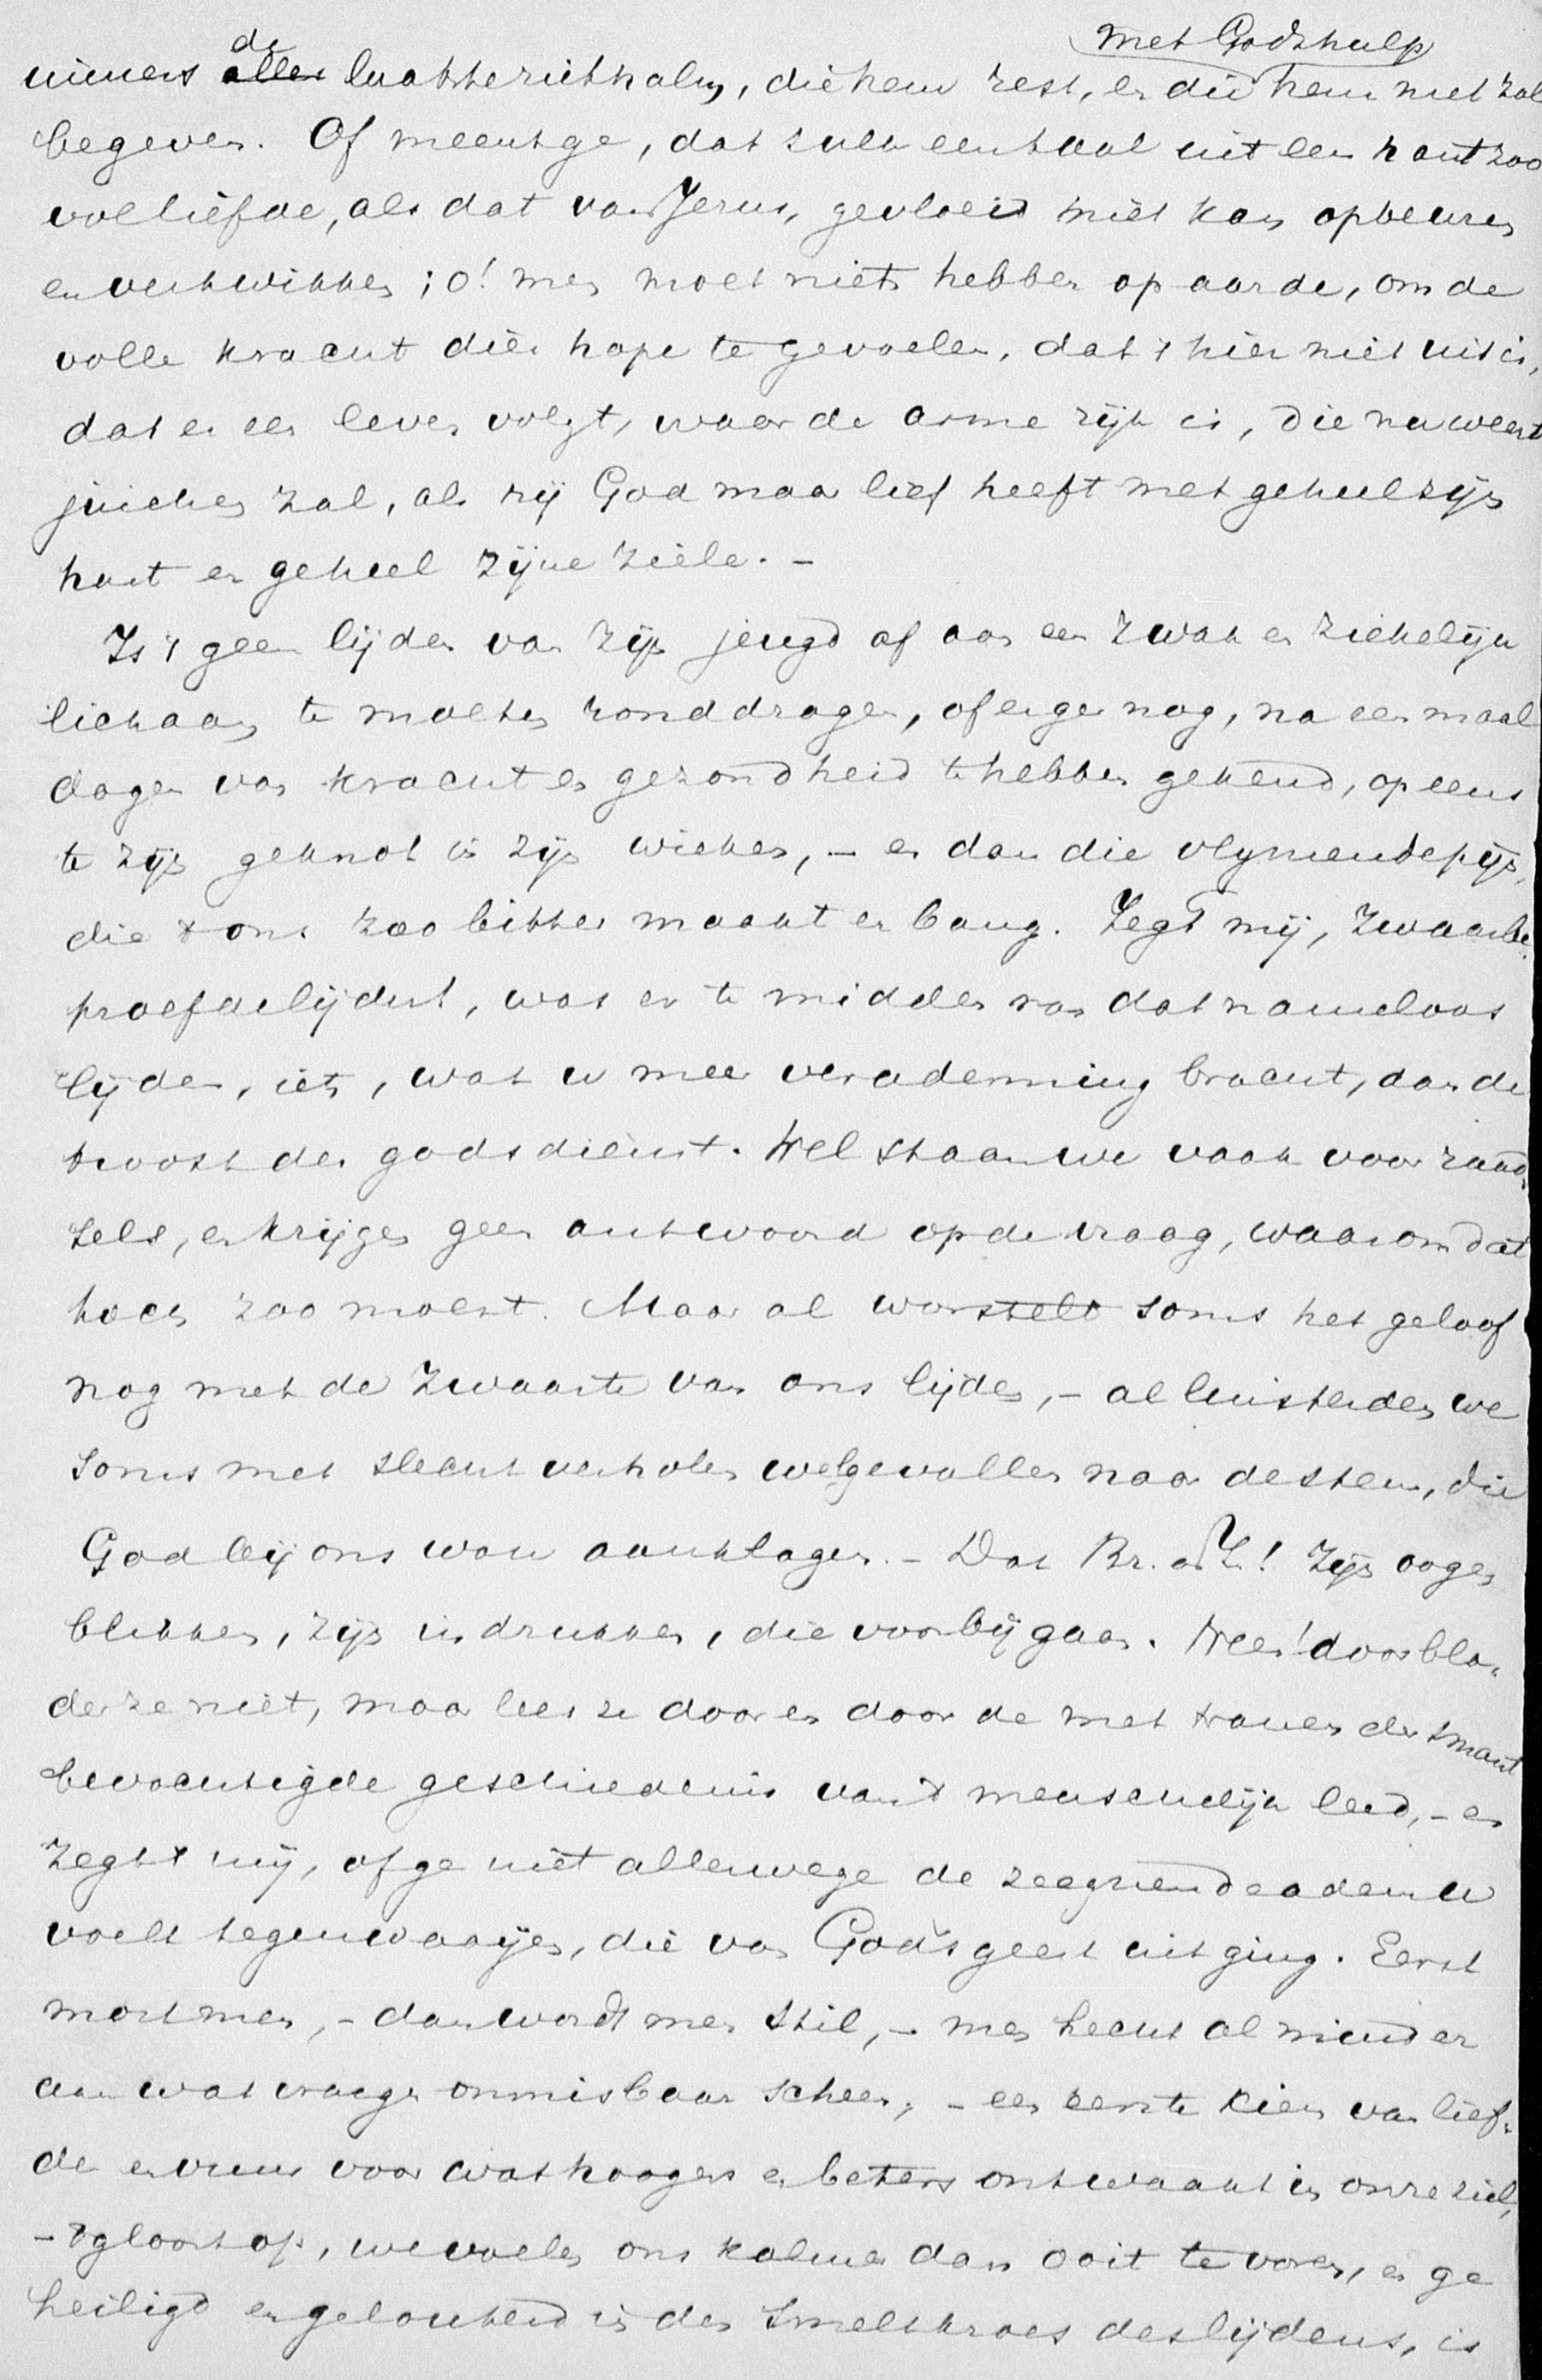 met Gods hulp
immers de aller laatste riethalm, die hem rest, en die hem niet zal
begeven. Of meent ge, dat zulk een taal uit een hart zoo
vol liefde, als dat van Jezus, gevloeid niet kan opbeuren
en verkwikken; o! men moet niets hebben op aarde, om de
volle kracht dier hope te gevoelen, dat 't hier niet uit is,
dat er een leven volgt, waar de arme rijk is, die nu weent
juichen zal, als hij God maar lief heeft met geheel zijn
hart en geheel zijne ziele. –
Is 't geen lijden van zijn jeugd af aan een zwak en ziekelijk
lichaam te moeten ronddragen, of erger nog, na eenmaal
dagen van kracht en gezondheid te hebben gekend, opeens
te zijn geknot in zijn wieken, – en dan die vlijmende pijn,
die ons zoo bitter maakt en bang. Zegt mij, zwaarbe-
proefde lijders, was er te midden van dat nameloos
lijden, iets, wat u meer verademing bracht, dan de
troost der godsdienst. Wel staan we vaak voor raad-
sels, en krijgen geen antwoord op de vraag, waarom dat
toch zoo moest. Maar al worstelt soms het geloof
nog met de zwaarte van ons lijden, – al luisterden we
soms met slecht verholen welgevallen naar de stem, die
God bij ons wou aanklagen. – Dat Br. en Z.! zijn oogen
blikken, zijn indrukken, die voorbijgaan. Neen! doorbla-
der ze niet, maar lees ze door en door de met tranen der smart
bevochtigde geschiedenis van 't menschelijk leed, – en
zegt mij, of ge niet allerwege de zeegnende adem u
voelt tegenwaaijen, die van Gods geest uitging. Eerst
mort men, – dan wordt men stil, – men hecht al minder
aan wat vroeger onmisbaar scheen, – een eerste kiem van lief-
de en vrees voor wat hoogers en beters ontwaakt in onze ziel,
– 't gloort op, we voelen ons kalmer dan ooit te voren, en ge
heiligd en gelouterd in den smeltkroes des lijdens, is